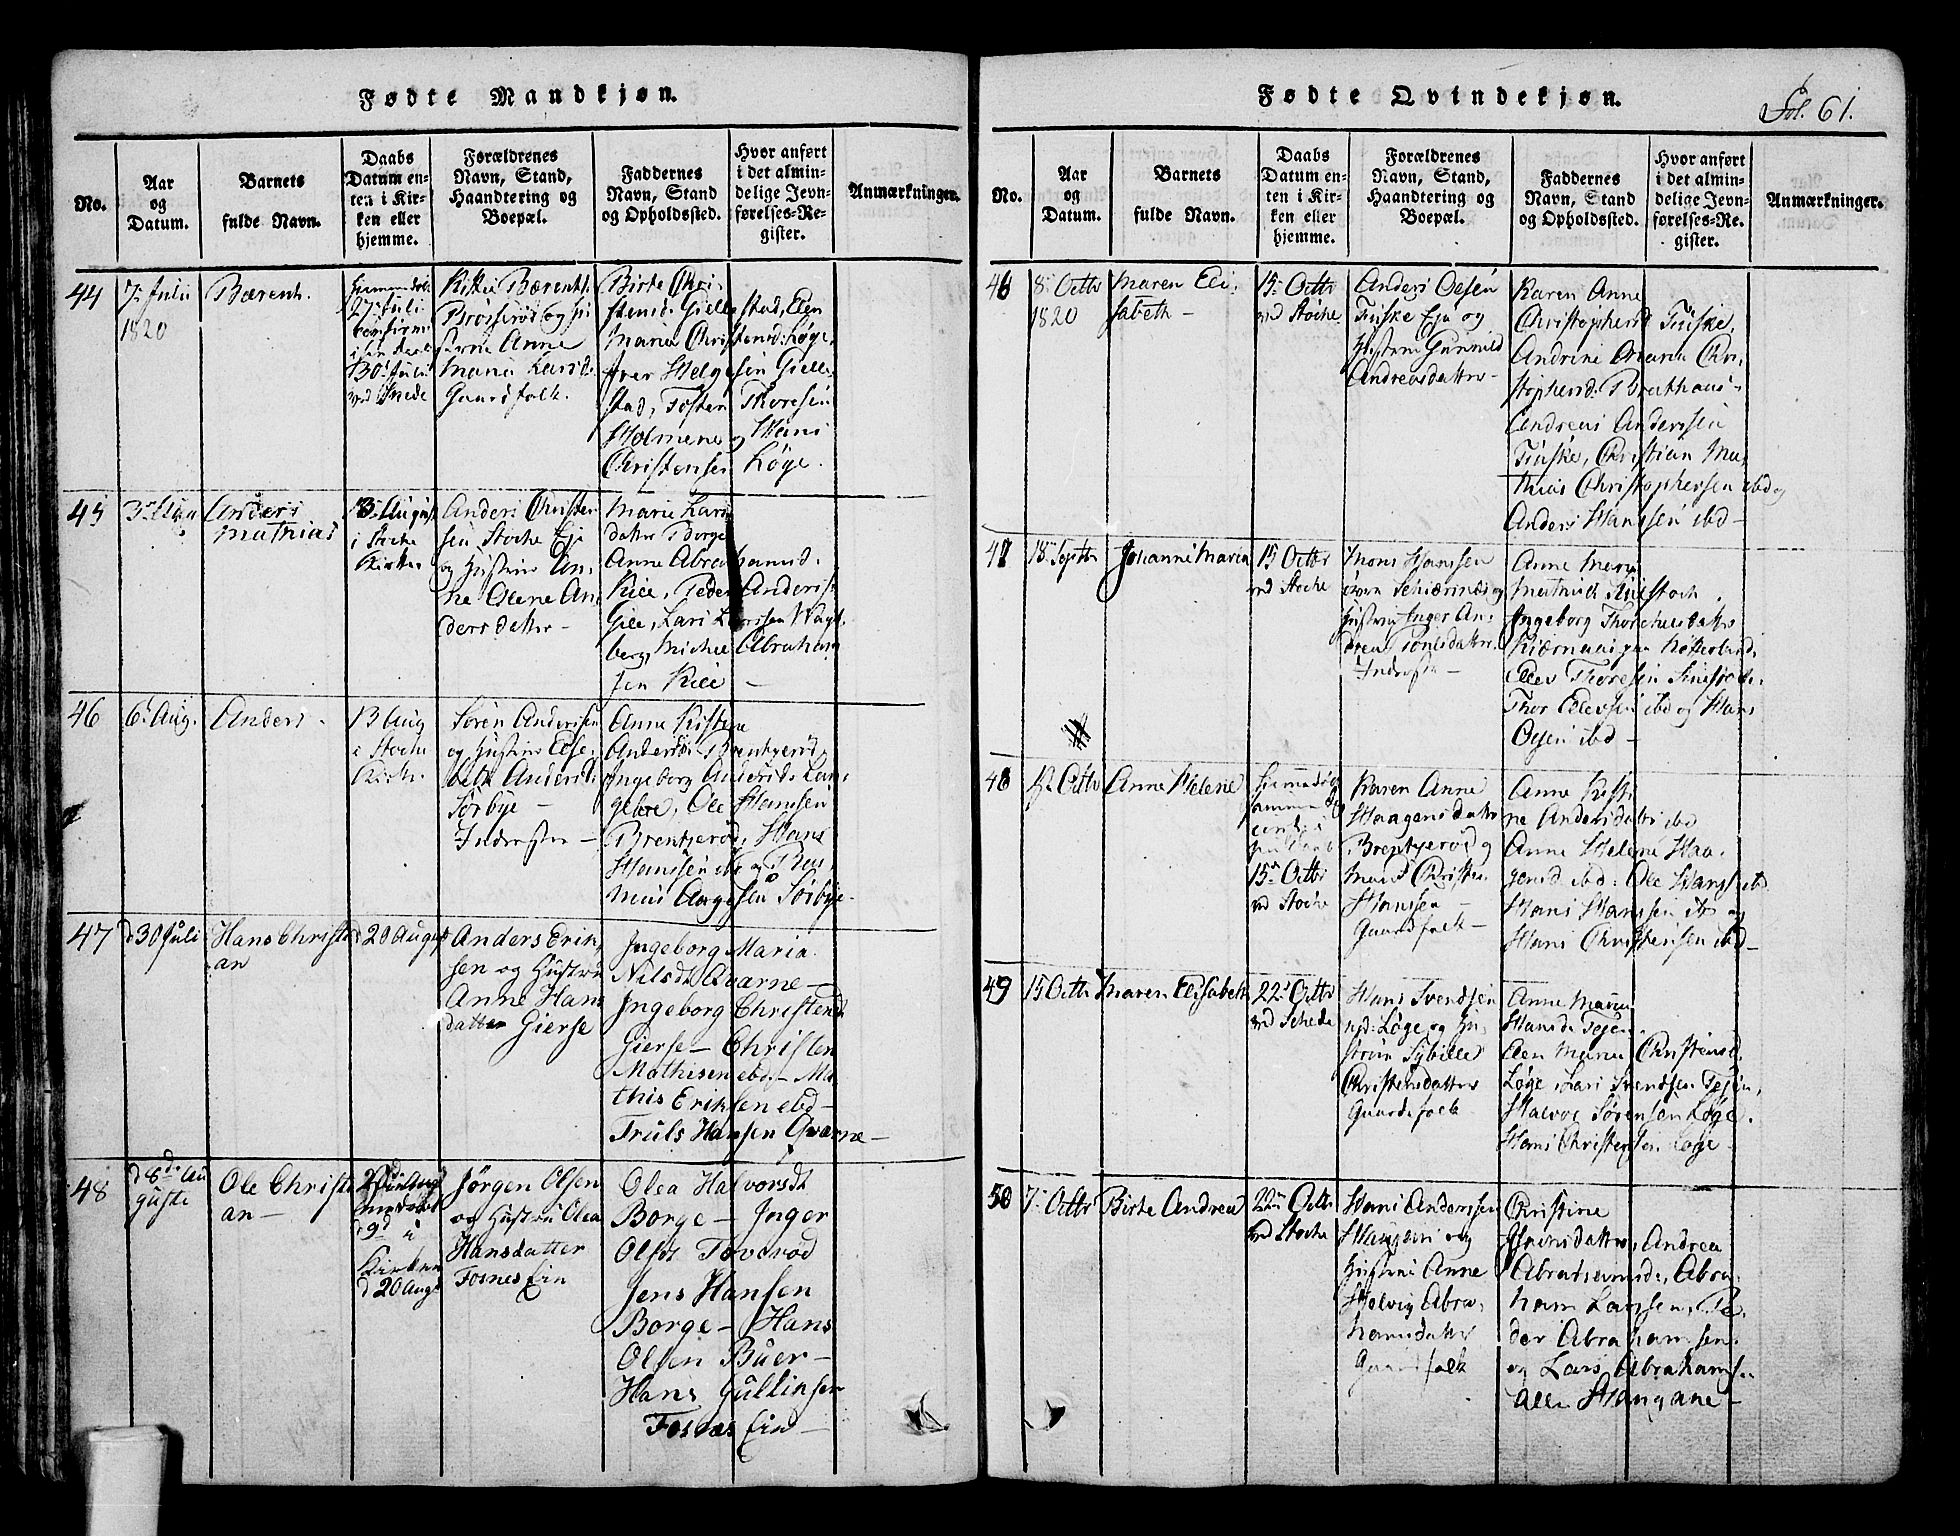 Fødte Mandkjøn.
No.
Aar
og
Datum.
Barnets
fulde Navn.
Daabs
Datum en-
ten i Kir-
ken eller
hjemme.
Forældrenes
Navn, Stand,
Haandtering og
Boepæl.
Faddernes
Navn, Stand
og Opholdssted.
Hvor anført
i det almin-
delige Jevn-
førelses-Re-
gister.
Anmærkninger.
44
7. Julii
1820
Bærent.
27. Julii
30. Julii
Bærents.
og
Anne
Maria Larsd.
Gaardfolk.
Birte Chri-
stensd. Gielle stad, Elen
Maria Christensd. Løge,
Iver Helgesen Gielle
stad, Tosten Thoresen
Holmene og Hans
Christensen Løge.
45
Anders
Mathias
13. August
i Stocke
Kirke
Anders Christen
sen Stocke Eje
og Hustrue An-
ne Olene An-
dersdatter –
Marie Lars
datter Borge
Anne Abrahamsd.
Riee, Peder Anders
Giee, Lars Larssen
berg, Michel Abraham
sen Riee –
46
6. Aug.
Anders –
13 Aug
i Stocke
Kirke.
Søren Anderssen
og Hustrue Elise-
beth Andersd.
Sørbye –
Inderster –
Anne Kistine
Andersd. Brenkjerød,
Ingeborg Andersd. Lan-
gebre, Ole Hanssen
Brenkjerød, Hans
Hanssen ibd og Ras-
mus Aagesen Sørbye –
47
d 30 Juli
Hans Christi
an
d 20 August
Anders Erik
sen og Hustru
Anne Hans
datter Gierse
Ingeborg Maria
Nilsdt Qvarne –
Ingeborg Christensd
Gierse – Christen
Mathisen ebd – Ma
this Eriksen ebd –
Truls Hansen Qvarne –
48
d 8d. Au
guste
Ole Christi
an –
i
Kirken
d 20 Augs
Jørgen Olsen
og Hustru Olea
Hansdatter
Fosnes Ein
Olea Halvorsdt
Borge – Inger
Olsdt Toverød
Jens Hansen
Borge – Hans
Olsen Buer –
Hans Gullinsen
Fosnes Ein –
Fødte Qvindekjøn.
Fol. 61.
No.
Aar
og
Datum.
Barnets
fulde Navn.
Daabs
Datum en-
ten i Kir-
ken eller
hjemme.
Forældrenes
Navn, Stand,
Haandtering og
Boepæl.
Faddernes
Navn, Stand
og Opholdssted.
Hvor anført
i det almin-
delige Jevn-
førelses-Re-
gister.
Anmærkninger.
46
8. Octbr
1820
Maren Eli-
sabeth –
15. Octbr
ved Stocke
Anders Olsen
Tuiske Eje og
Hustrue Gunnild
Andreasdatter –
Karen Anne
Christophersd Tuiske,
Andrine Maria Chri-
stophersd. Brathaus –
Andreas Anderssen
Tuiske, Christian Ma-
thias Christophersen ibd og
Anders Hanssen ibd –
47
18. Septbr
Johanne Maria
15 Octbr
ved Stocke
Mons Hanssen
og
Hustrue Inger An-
drea Tonisdatter.
Inderster –
Anne Maria
Ingeborg
Ellev Thoresen
Thor Ellevsen ibd og Hans
Olsen ibd –
48
Octbr
Anne Helene
15n Octbr
ved Stocke
Karen Anne
Haagensdatter
Brenkjerød og
Mand Christen
Hanssen –
Gaardfolk –
Anne Kisti-
ne Andersdatter ibd
Anne Helene Haa-
gensd ibd. Ole Hanss. ibd
Hans Hanssen ibd og
Hans Christensen ibd –
49
15 Octbr
Maren Elisabeth
22. Octbr
ved Schede
Hans Svendsen
ned. Løge og Hu-
strue Sybille
Christensdatter
Gaardfolk
Anne Maria
Hansd. Tejen
Elen Maria Christensd.
Løge, Lars Svendsen Tejen,
Halvor Sørensen Løge.
Hans Christensen Løge –
50
7. Octbr
Birte Andrea
22n Octbr
ved Stocke
Hans Anderssen
Haugan og
Hustrue Anne
Helvig Abra-
hamsdatter
Gaardfolk
Christine
Andrea
Abrahamsd., Abra-
ham Larssen, Pe-
der Abrahamsen
og Lars Abrahams.
alle Haugane –